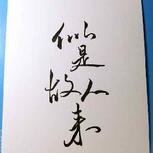 似是
故人来